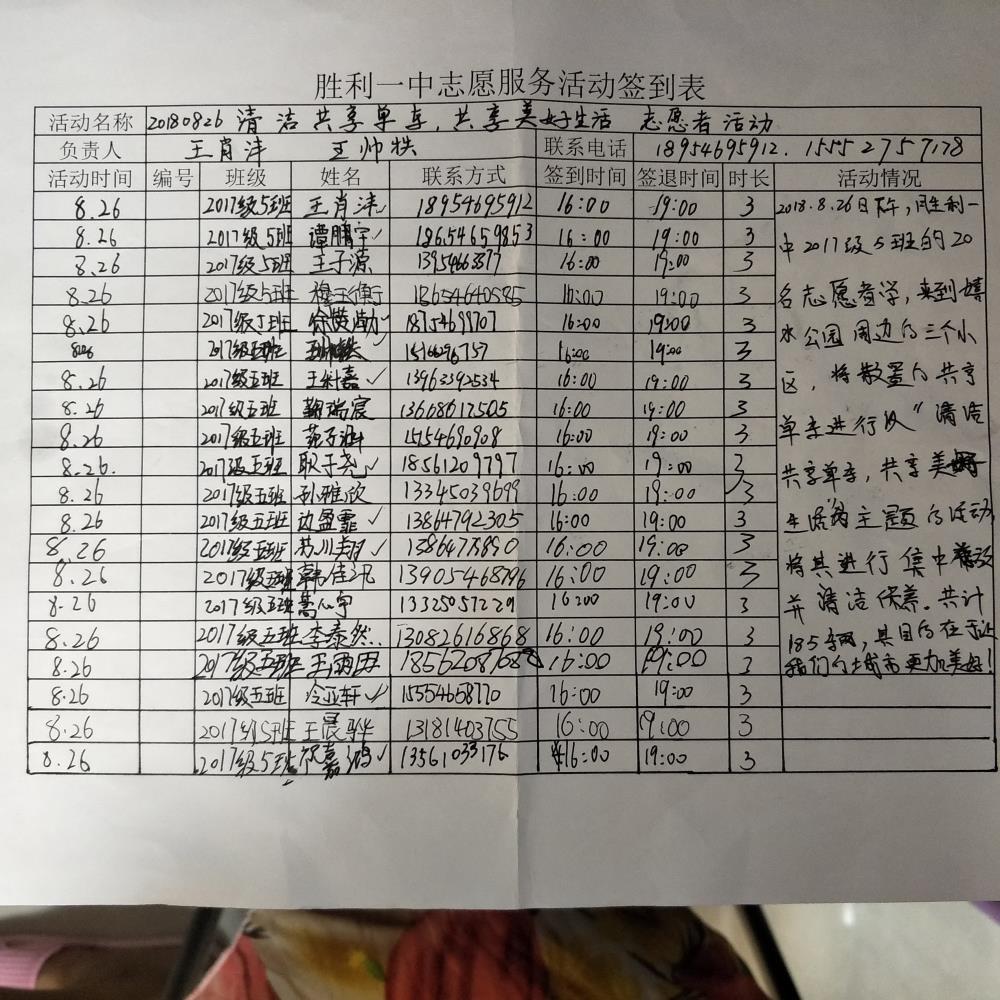 胜利一中志愿服务活动签到表
活动名称 20180826 清洁共享单车,共享美好生活 志愿者活动
负责人 王肖沣 王帅 联系电话 18954695912. 15552757178
活动时间 编号 班级 姓名 联系方式 签到时间 签退时间 时长 活动情况
8.26 2017级5班 王肖沣✓ 18954695912 16:00 19:00 3 2018.8.26日下午,胜利一
8.26 2017级5班 谭鹏宇✓ 18654659853 16:00 19:00 3 中2017级5班的20
8.26 2017级5班 王子源 16:00 19:00 3
8.26 2017级5班 16:00 19:00 3 名志愿者 来到
8.26 2017级5班 18754699707 16:00 19:00 3 水公园周边的三个小
8.26 2017级五班 16:00 19:00 3
8.26 2017级五班 王科嘉✓ 13963392534 16:00 19:00 3 区,将散置的共享
8.26 2017级五班 鞠瑞宸 13668617505 16:00 19:00 3
8.26 2017级五班 16:00 19:00 3 单车进行以"清洁
8.26. 2017级五班 耿子尧✓ 18561209797 16:00 19:00 3 共享单车,共享美好
8.26 2017级五班 孙雅欣 13345039699 16:00 19:00 3
8.26 2017级五班 边盈霏✓ 13864792305 16:00 19:00 3 生活 主题的活动
8.26 2017级五班 苏川翔✓ 16:00 19:00 3
8.26 2017级五班 韩佳 13905468796 16:00 19:00 3 将其进行集中
8.26 2017级五班 13325057229 16:00 19:00 3 并清洁保养。共计
8.26 2017级五班 李泰然 13082616868 16:00 19:00 3 185辆,其目的在于让
8.26 2017级五班 王雨田 16:00 19:00 3 我们的城市更加美好!
8.26 2017级五班 冷亚轩✓ 15554658770 16:00 19:00 3
8.26 2017级5班 王晨骅 13181403755 16:00 19:00 3
8.26 2017级5班 祝嘉鸿✓ 13561033176 16:00 19:00 3